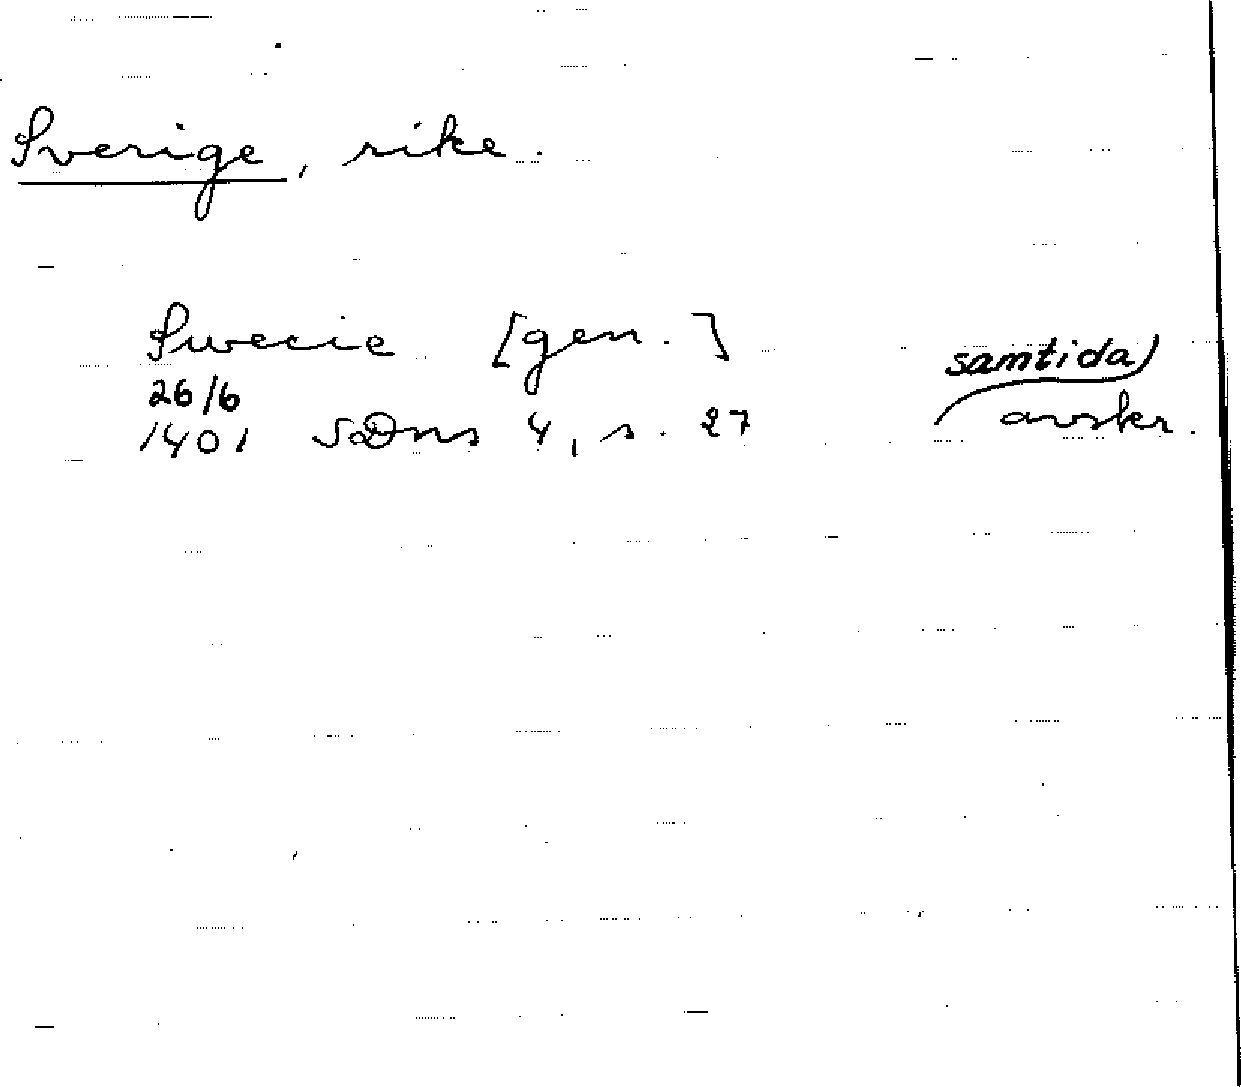 Sverige, rike.
Swecie [gen.]
samtida)
26/6
1401 SDns 4, s. 27 avskr.